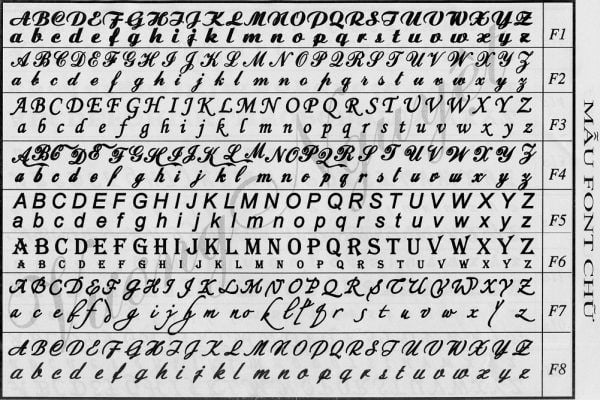 A B C D E F G H I J K L M N O P Q R S T U V W X Y Z F1
a b c d e f g h i j k l m n o p q r s t u v w x y z
A B C D E F G H I J K L M N O P Q R S T U V W X Y Z F2
a b c d e f g h i j k l m n o p q r s t u v w x y z
A B C D E F G H I J K L M N O P Q R S T U V W X Y Z F3
a b c d e f g h i j k l m n o p q r s t u v w x y z
A B C D E F G H I J K L M N O P Q R S T U V W X Y Z F4
a b c d e f g h i j k l m n o p q r s t u v w x y z
A B C D E F G H I J K L M N O P Q R S T U V W X Y Z F5
a b c d e f g h i j k l m n o p q r s t u v w x y z
A B C D E F G H I J K L M N O P Q R S T U V W X Y Z F6
A B C D E F G H I J K L M N O P Q R S T U V W X Y Z
A B C D E F G H I J K L M N O P Q R S T U V W X Y Z F7
a c e g h i j m n o k r s t u v w x y z
A B C D E F G H I J K L M N O P Q R S T U V W X Y Z F8
a b c d e f g h i j k l m n o p q r s t u v w x y z
MẪU FONT CHỮ